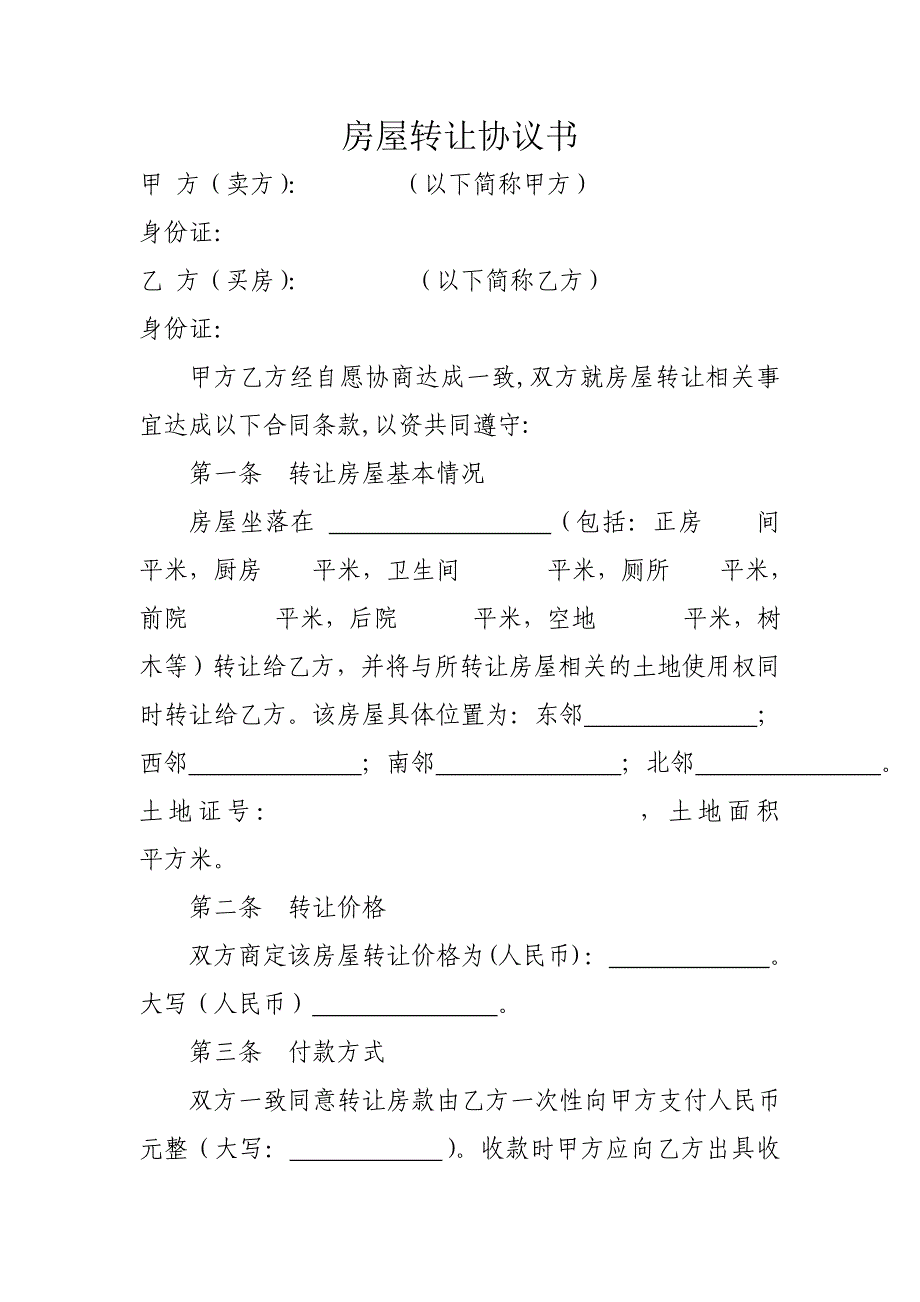 房屋转让协议书
甲 方（卖方）： （以下简称甲方）
身份证：
乙 方（买房）： （以下简称乙方）
身份证：
甲方乙方经自愿协商达成一致,双方就房屋转让相关事
宜达成以下合同条款,以资共同遵守：
第一条 转让房屋基本情况
房屋坐落在 __________________（包括：正房 间
平米，厨房 平米，卫生间 平米，厕所 平米，
前院 平米，后院 平米，空地 平米，树
木等）转让给乙方，并将与所转让房屋相关的土地使用权同
时转让给乙方。该房屋具体位置为：东邻______________；
西邻______________；南邻_______________；北邻_______________。
土地证号： ，土地面积
平方米。
第二条 转让价格
双方商定该房屋转让价格为(人民币)：_____________。
大写（人民币）_______________。
第三条 付款方式
双方一致同意转让房款由乙方一次性向甲方支付人民币
元整（大写：____________）。收款时甲方应向乙方出具收